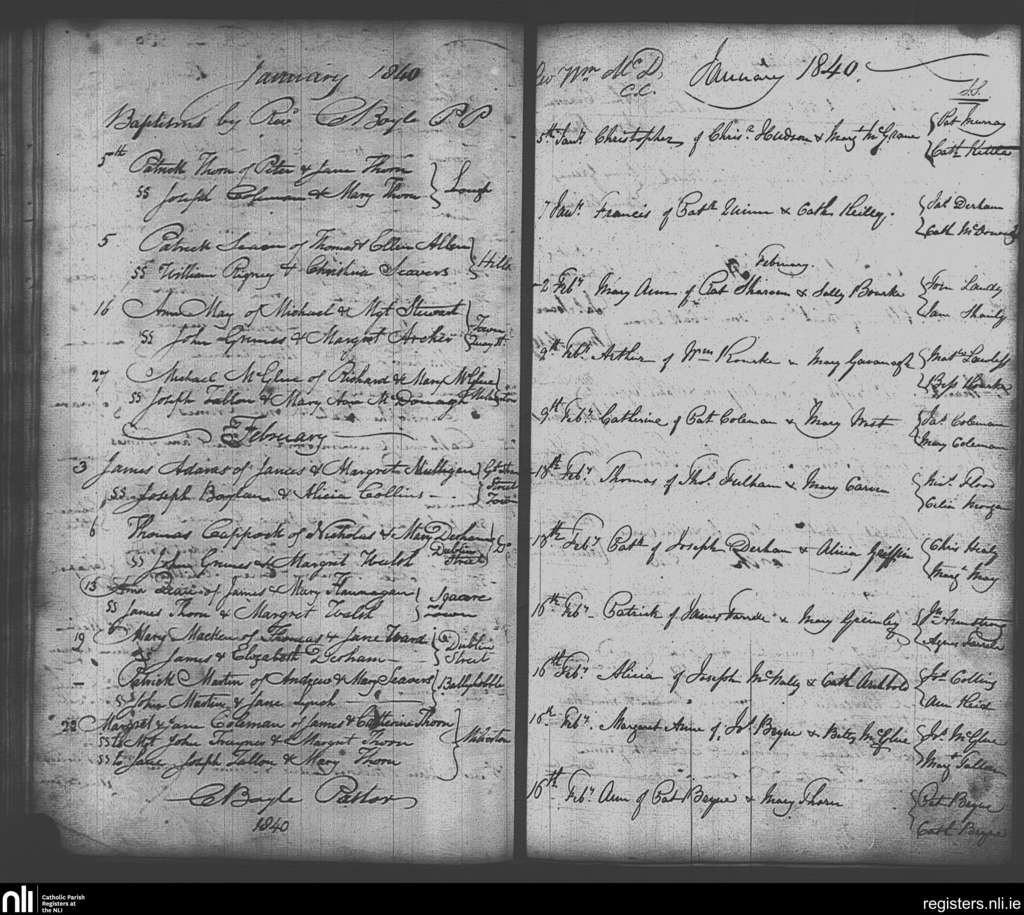 January 1840
Baptisms by Revd C Boyle P P
5th Patrick Thorn of Peter & Jane Thorn
SS Joseph Coleman & Mary Thorn
5 Patrick of Thomas & Ellen Allen
SS William Rigney & Christina Seavers
Hill
16 Ann May of Michael & Mgt Stewart
SS John Grimes & Margret Archer
Town
27 Michael McGlue of Richard & Mary McGlue
SS Joseph Tallon & Mary Ann McDonnagh
February
3 James Adams of James & Margret Mulligan
SS Joseph Boylan & Alicia Collins
Street
Town
6 Thomas Cappock of Nicholas & Mary Derham
Dublin
Street
Do
SS John Grimes & Margret Welsh
13 of James & Mary Flannagan
SS James Thorn & Margret Welsh
Square
Town
19 Mary Macken of Thomas & Jane Ward
SS James & Elizabeth Derham
Dublin
Street
Patrick Martin of Andrew & Mary Seavers
SS John Martin & Jane Lynch
22 Margret & Jane Coleman of James & Catherine Thorn
SS to Mgt John Traynor & Margret Thorn
SS to Jane Joseph Tallon & Mary Thorn
CBoyle Pastor
1840
Rev Wm McD. January 1840.
C.C.
S.S.
5th Jany. Christopher of Chrisr. Hudson & Margt McGrane
Pat Murray
Cath
7 Jany. Francis of Patk Quinn & Cath Reilly.
Jas Derham
Cath McDonnagh
February
2 Feby. Mary Ann of Pat & Sally Bourke
Tom Landy
Jane
9th Feby. Arthur of Wm Rourke & Mary Cavanagh
Bess Rourke
9th Feby. Catherine of Pat Coleman & Mary
Jas. Coleman
Mary Coleman
18th Feby. Thomas of Thos. Fulham & Mary
Michl. Flood
Celia
13th Feby Cath. of Joseph Derham & Alicia Griffin
Chris Healy
Margt May
16th Feby. Patrick of James & Mary
Agnes
16th Feby. Alicia of Joseph McNally & Cath Archbold
Jos. Collins
Ann Reid
16th Feby. Margaret Anne of Jos. Bryne & Betty McGlue
Jos. McGlue
Margt Tallon
16th Feby. Ann of Pat Bryne & Mary Thorn
Pat Bryne
Cath Bryne
nli
Catholic Parish
Registers at
the NLI
registers.nli.ie